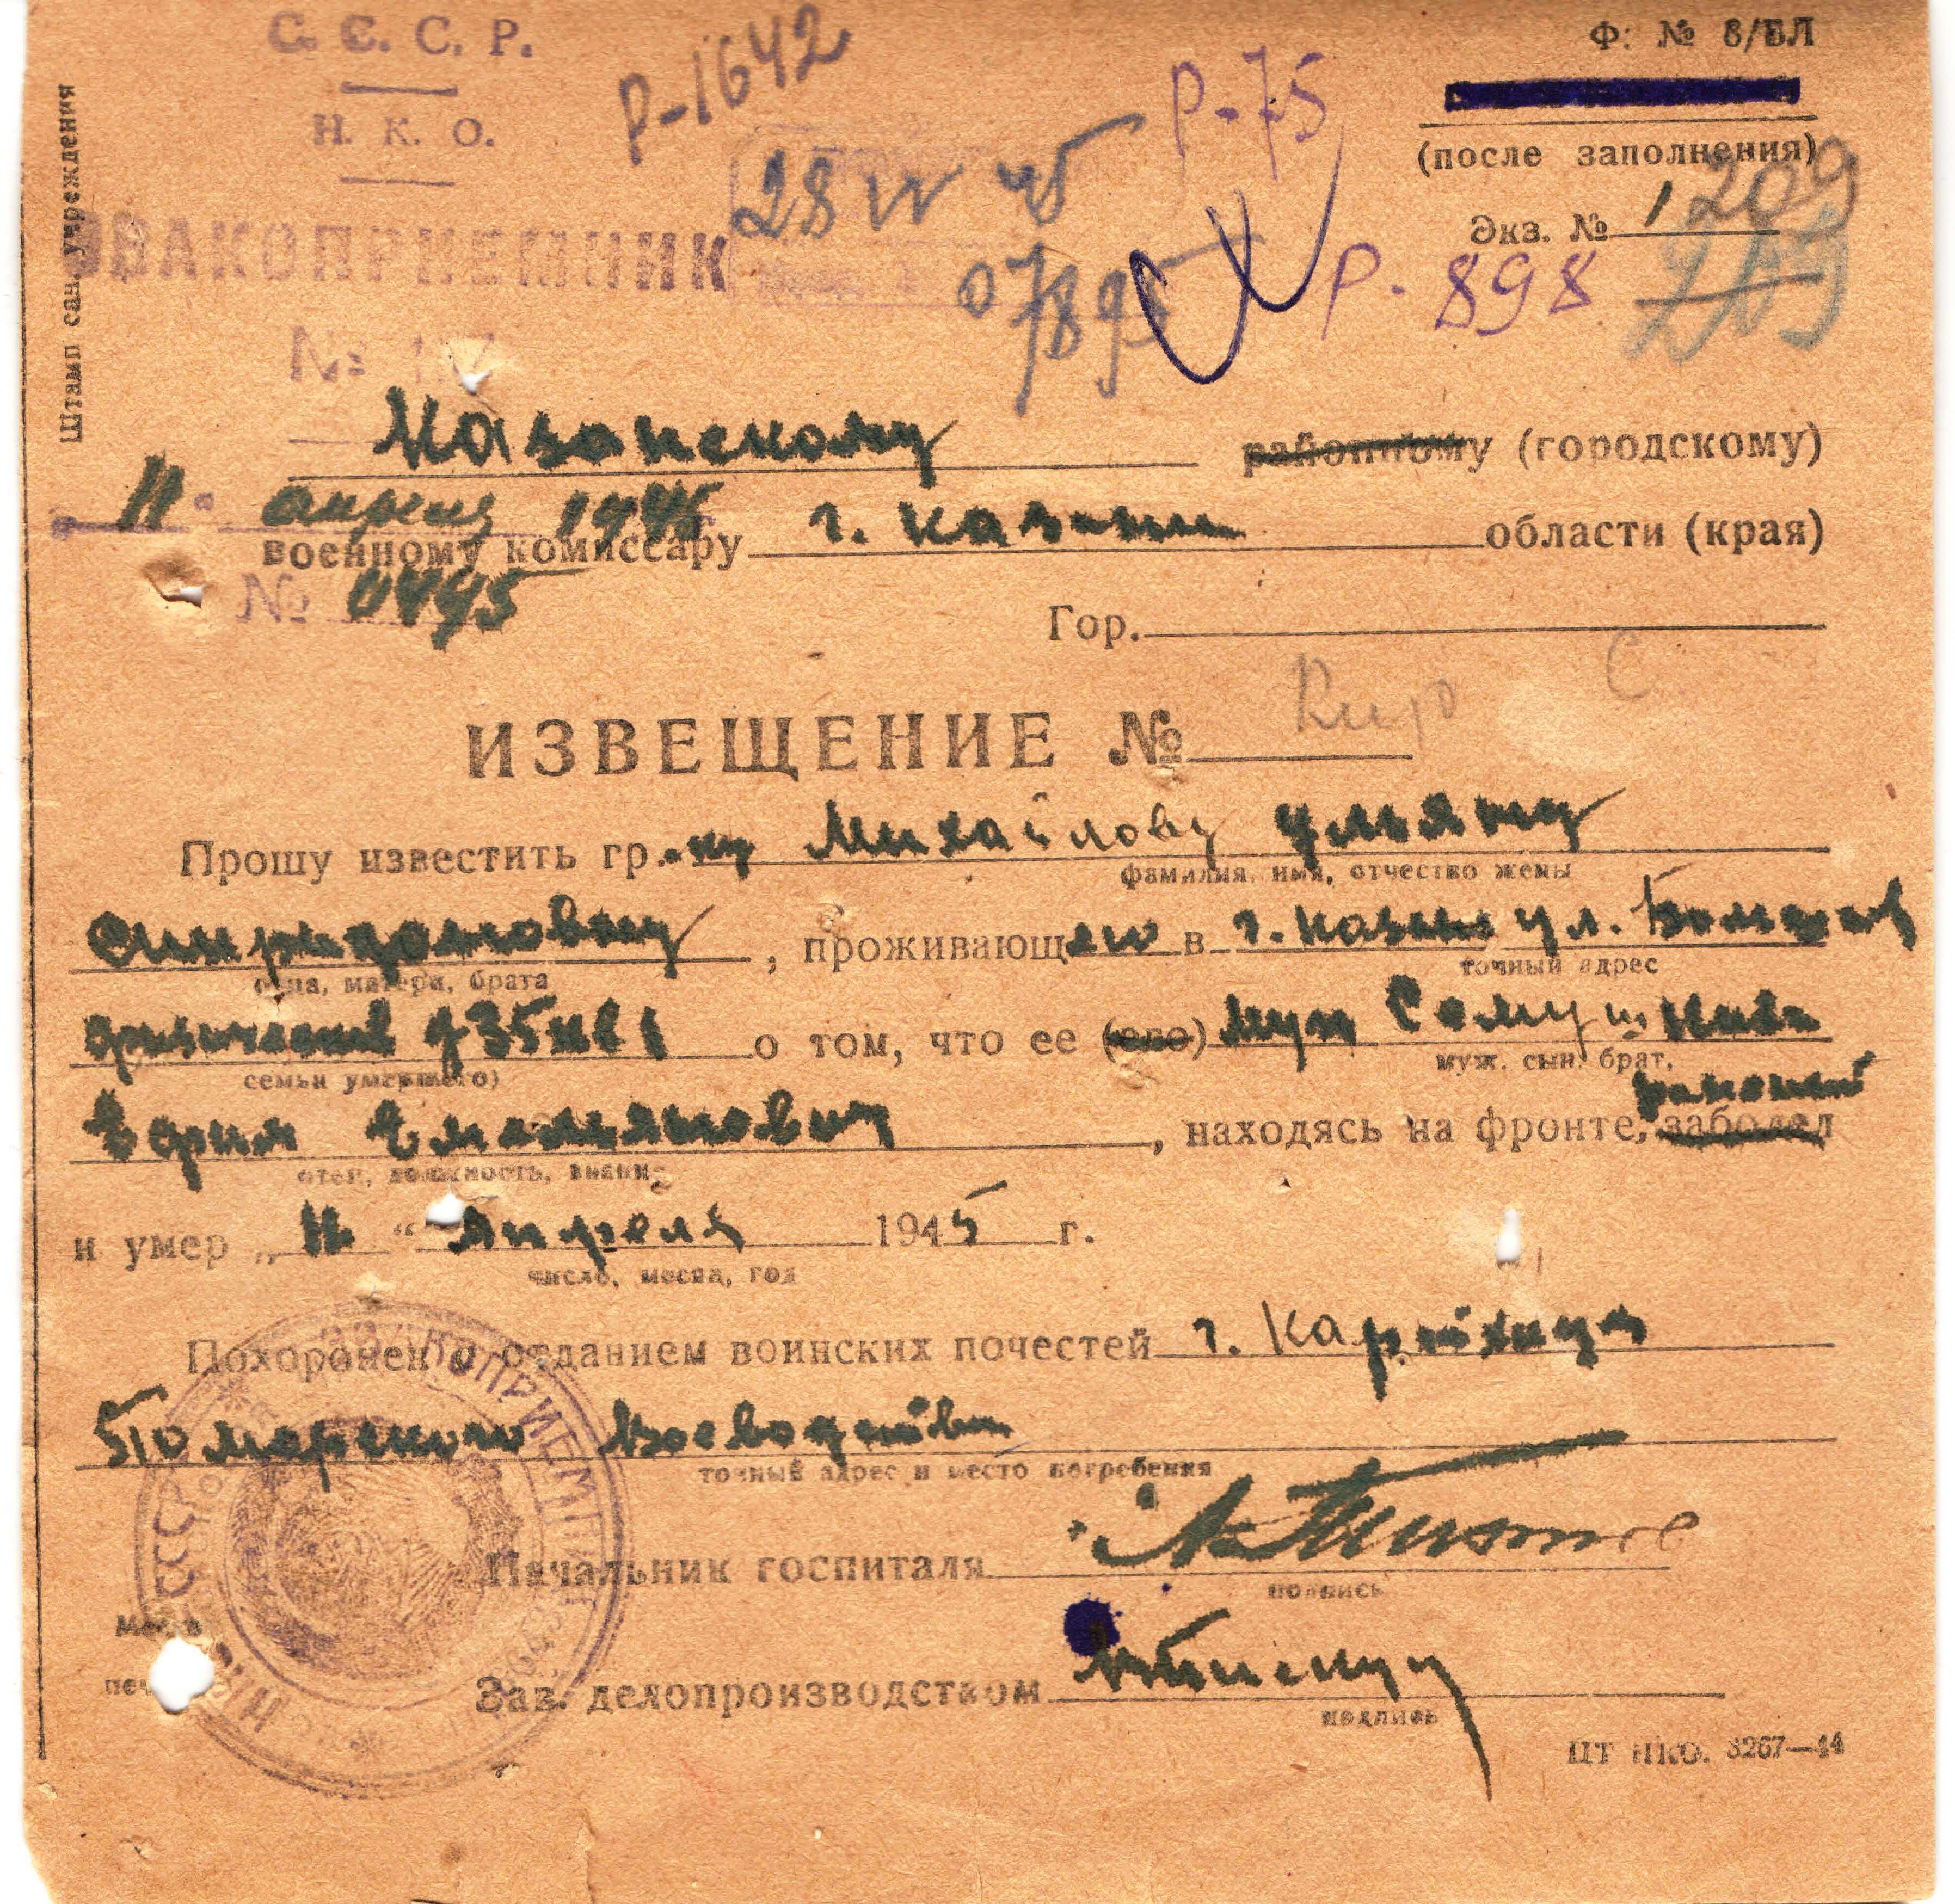 С. С. С. Р.
Н. К. О.
ЭВАКОПРИЕМНИК
№
Штамп сан. учреждения
Р-1642
28 IV 45
07895
Р-75
Р-898
Ф: № 8/БЛ
(после заполнения)
Экз. № 1
209
209
Казанскому районному (городскому)
11 апреля 1945
военному комиссару г. Казани области (края)
№ 0495
Гор.
ИЗВЕЩЕНИЕ №
Прошу известить гр.-ку Михайлову Ульяну
фамилия, имя, отчество жены
Спиридоновну, проживающую в г. Казани ул. Большая
отца, матери, брата
точный адрес
д 35 кв 1 о том, что ее (его) муж
семьи умершего)
муж. сын, брат,
Ефим Емельянович, находясь на фронте, заболел ранений
отеч, должность, звание
и умер „11“ Апреля 1945 г.
число, месяц, год
Похоронен с отданием воинских почестей г.
Воеводства
точный адрес и место погребения
Начальник госпиталя
подпись
Место
печ
Зав. делопроизводством
подпись
ЦТ НКО. 3267—44
ЭВАКОПРИЕМНИК
НКО СССР